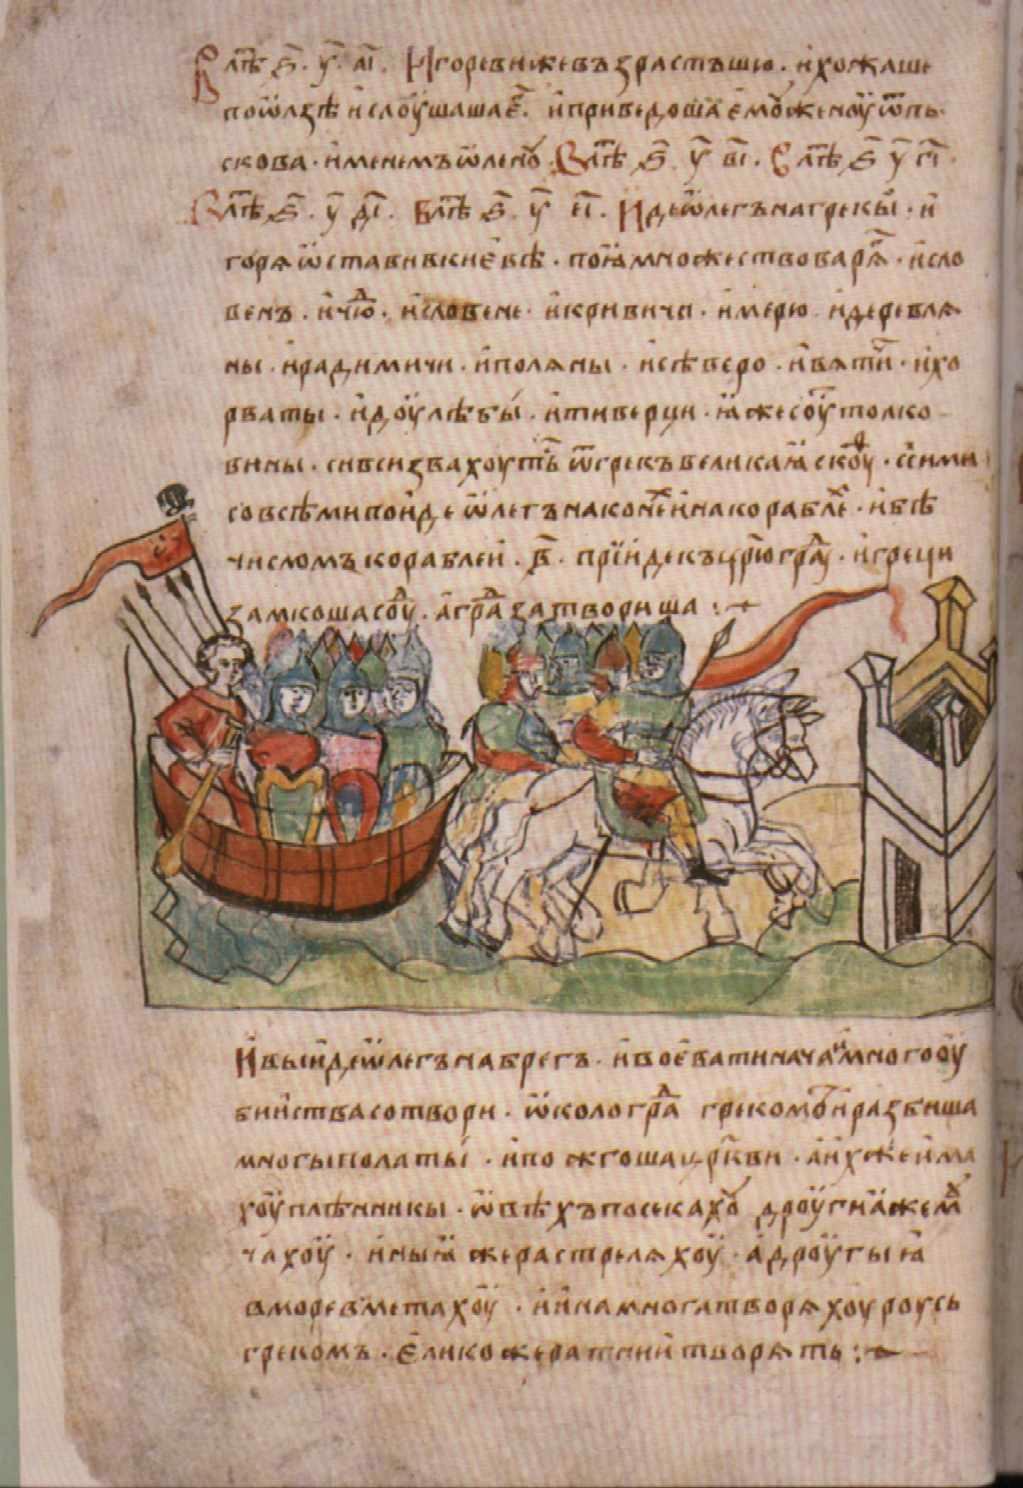 В лѣⷮ ҂ѕ҃ у҃ а҃і. Игореви же възрастъшю. и хожаше
по ѿлзѣ и слоушаша еⷢ. и приведоша ємоу женоу ѿ пь
скова. именемъ ѿленоу. В лѣⷮ ҂ѕ҃ у҃ в҃і. В лѣⷮ ҂ѕ҃ у҃ г҃і.
В лѣⷮ ҂ѕ҃ у҃ д҃і. В лѣⷮ ҂ѕ҃ у҃ е҃і. Иде ѿлегъ на грекы. и
горѧ ѡстави в киевѣ. поꙗ множество варѧⷢ. и сло
венъ. и чюⷣ. и словене. и кривичи. и мерю. и деревлѧ
ны. и радимичи. и полѧны. и сѣверо. и вѧтиⷱ. и хо
рваты. и доулѣбы. и тиверци. ꙗже соуⷮ толко
вины. си вси звахоутьⷭ ѿ грекъ великаꙗ скоуⷴ. с сими
со всѣми поиде ѿлегъ на конеⷯ и на корабле. и бѣ
числомъ кораблеи. в҃. прїиде къ црⷭ҇ю граⷣ. и греци
замкоша соуⷣ. а граⷣ затвориша :
И выиде ѿлегъ на брегъ. и воевати нача и много оу
бииства сотвори. ѡколо граⷣа грекомъ и разбиша
многы полаты. и пожгоша црⷪ҇кви. а иⷯ же има
хоу плѣнникы. ѡвѣхъ посекахоу дроугиꙗ же моуⷱ
чахоу. иныꙗ же растрелѧхоу. а дроугыꙗ
в море вметахоу. и ина многа творѧхоу роусь
грекомъ. елико же ратнии творѧть :